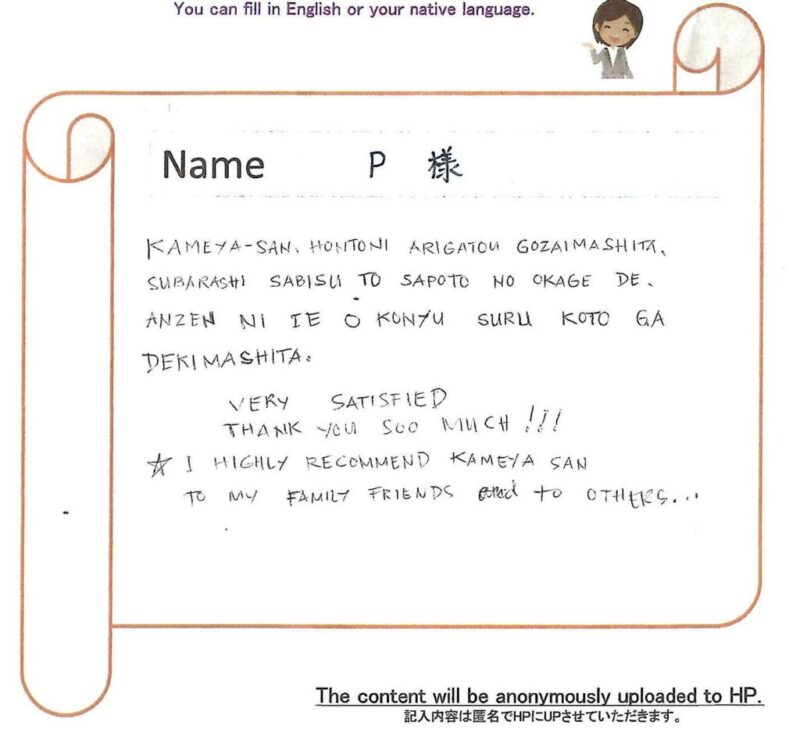 You can fill in English or your native language.
Name P 様
KAMEYA-SAN、HONTONI ARIGATOU GOZAIMASHITA、
SUBARASHI SABISU TO SAPOTO NO OKAGE DE、
ANZEN NI IE O KONYU SURU KOTO GA
DEKIMASHITA。
VERY SATISFIED
THANK YOU SOO MUCH!!!
☆ I HIGHLY RECOMMEND KAMEYA SAN
TO MY FAMILY FRIENDS and to OTHERS...
The content will be anonymously uploaded to HP.
記入内容は匿名でHPにUPさせていただきます。